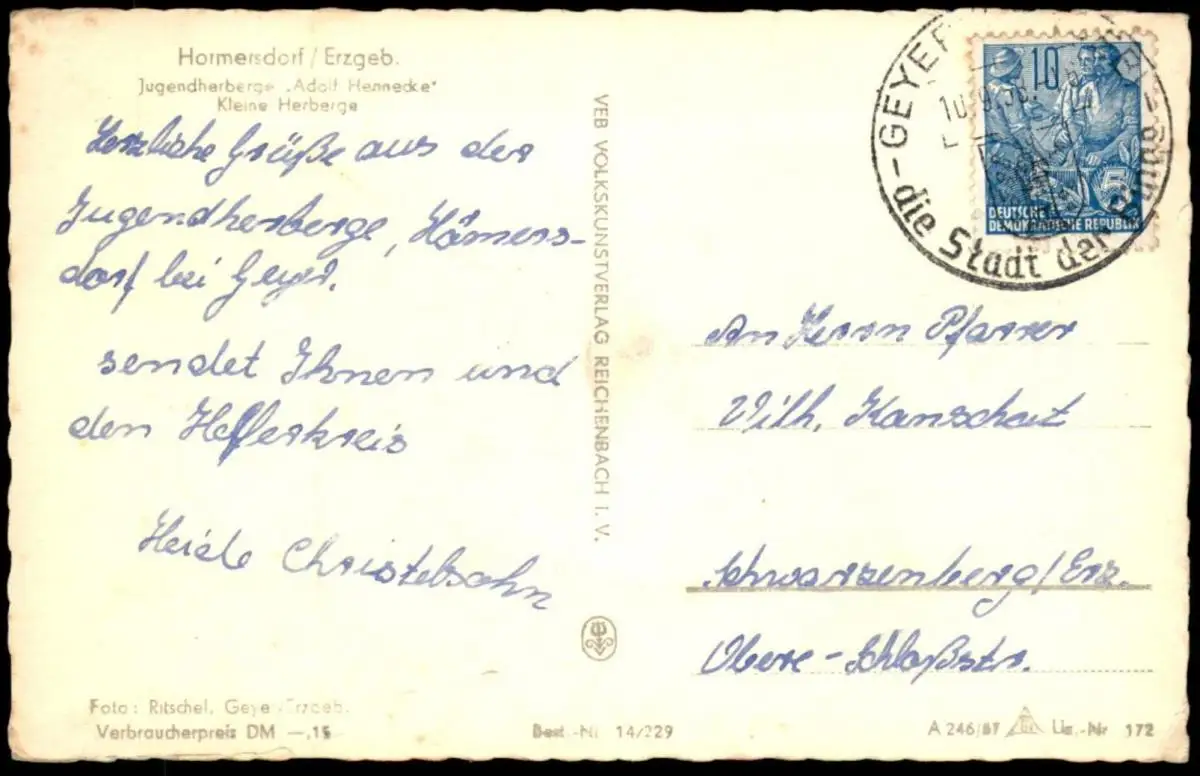 Hormersdorf / Erzgeb.
Jugendherberge „Adolf Hennecke"
Kleine Herberge
Herzliche Grüße aus der
Jugendherberge, Hömers-
dorf bei Geyer.
sendet Ihnen und
den Helferkreis
Heide Christelsohn
Foto: Ritschel, Geyer/Erzgeb.
Verbraucherpreis DM —,15
Best.-Nr. 14/229
VEB VOLKSKUNSTVERLAG REICHENBACH I. V.
GEYER
10.9.58
die Stadt der
10
5
DEUTSCHE
DEMOKRATISCHE REPUBLIK
An Herrn Pfarrer
Wilh. Kanschat
Schwarzenberg/Erz.
Obere-Schloßstr.
A 246/57 Lis.-Nr 172